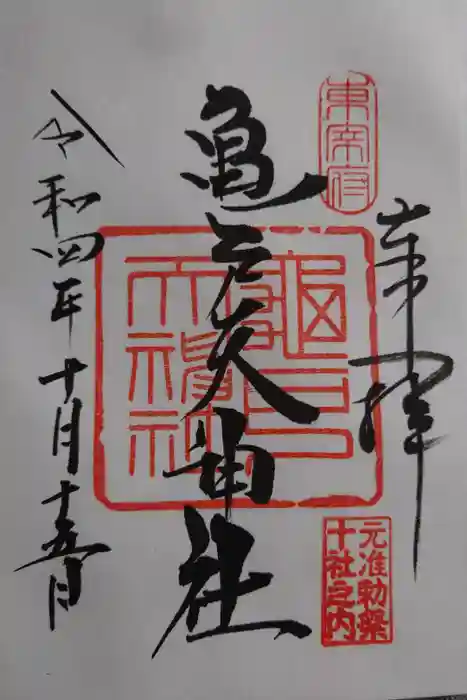 東宰府
奉拝
亀戸天神社
龜戸
天神社
元准勅祭
十社之内
令和四年十月十五日